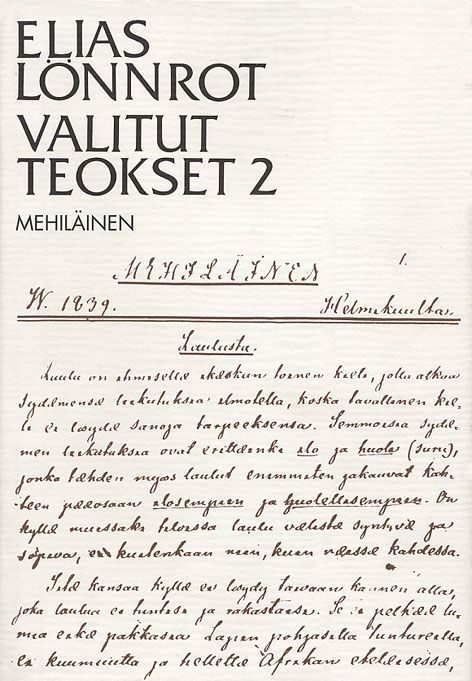 ELIAS
LÖNNROT
VALITUT
TEOKSET 2
MEHILÄINEN
MEHILÄINEN 1.
W. 1839. Helmikuulta.
Laulusta.
Laulu on ihmisellä ikäskun toinen kieli, jolla alkaa
sydämensä liikutuksia ilmotella, koska tavallinen kie-
li ei löydä sanoja tarpeeksensa. Semmoisia sydä-
men liikutuksia ovat erittäinki ilo ja huoli (suru),
jonka tähden myös laulut enimmiten jakauvat kah-
teen pääosaan ilosempiin ja huolellisempiin. On
kyllä muissaki tiloissa laulu välistä syntyvä ja
sopiva, ei kuitenkaan niin, kuin näissä kahdessa.
Sitä kansaa kyllä ei löydy taivaan kannen alla,
joka laulua ei tuntisi ja rakastaisi. Se ei pelkää lu-
mia eikä pakkasia Lapin pohjasilla tuntureilla,
ei kuumuutta ja hellettä Afrikan eteläisessä,